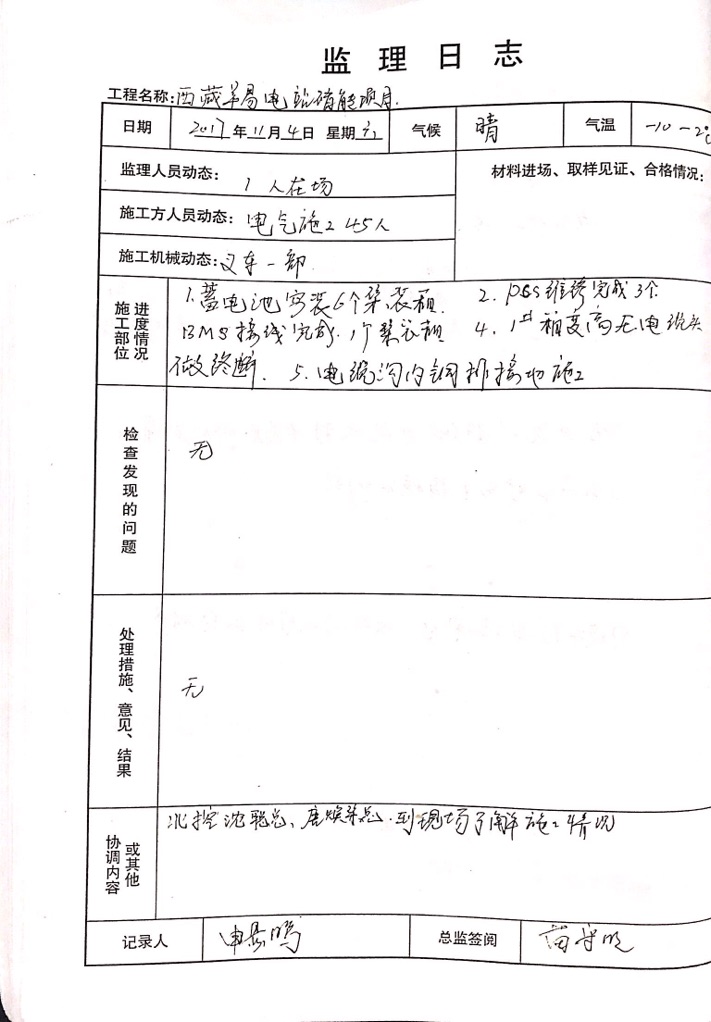 监理日志
工程名称:西藏羊易电站储能项目.
日期 2017年11月4日 星期六 气候 晴 气温 -10~2℃
监理人员动态: 1人在场
材料进场、取样见证、合格情况:
施工方人员动态: 电气施工45人
施工机械动态: 叉车一部
施工部位进度情况
1.蓄电池安装6个集装箱. 2. 完成3个
BMS接线完成.1个集装箱 4. 1#箱变高压电缆头
做终断. 5.电缆沟内铜排接地施工
检查发现的问题
无
处理措施、意见、结果
无
或其他协调内容
北控沈聪总、 总.到现场了解施工情况
记录人 总监签阅